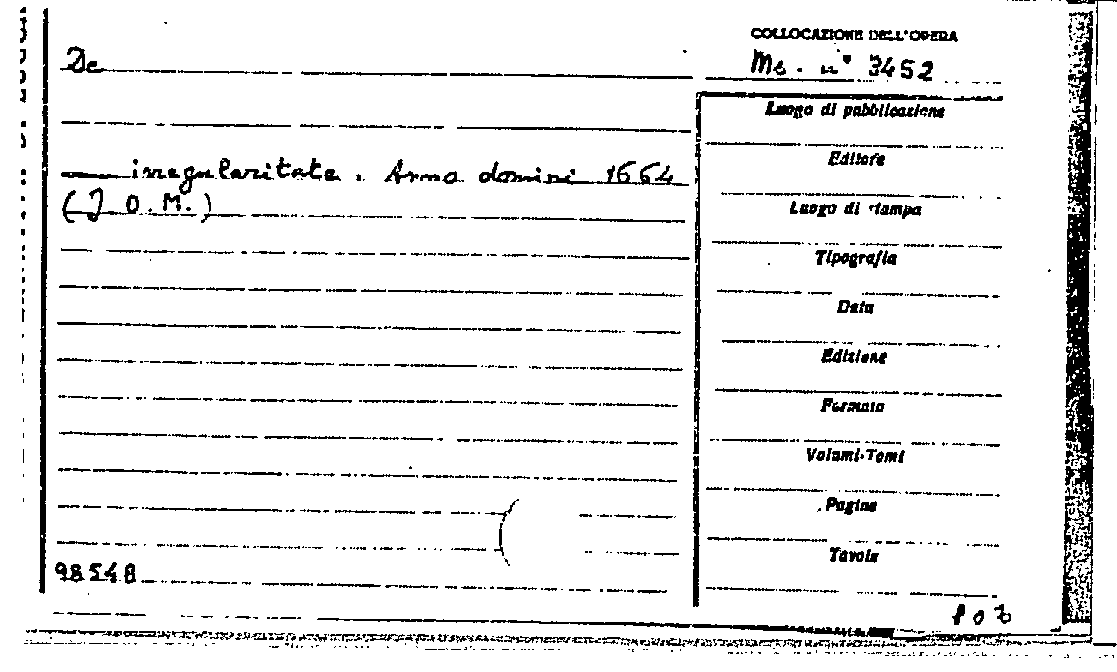 COLLOCAZIONE DELL'OPERA
De
Ms. n° 3452
irregularitate. Anno domini 1664
(J O. M.)
Luogo di pubblicazione
Editore
Luogo di stampa
Tipografia
Data
Edizione
Formato
Volumi-Tomi
Pagine
Tavole
98548